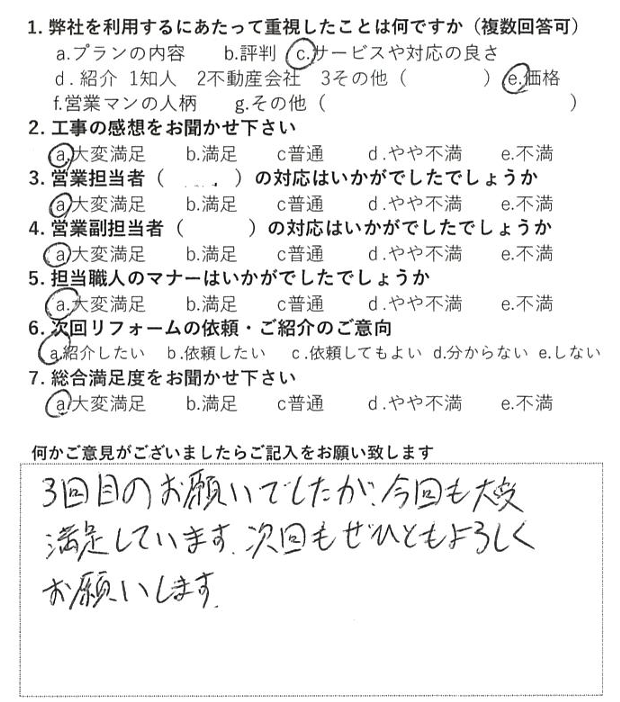 1. 弊社を利用するにあたって重視したことは何ですか（複数回答可）
a.プランの内容 b.評判 c.サービスや対応の良さ
d. 紹介 1知人 2不動産会社 3その他（ ） e.価格
f.営業マンの人柄 g.その他（ ）
2. 工事の感想をお聞かせ下さい
a.大変満足 b.満足 c普通 d.やや不満 e.不満
3. 営業担当者（ ）の対応はいかがでしたでしょうか
a.大変満足 b.満足 c普通 d.やや不満 e.不満
4. 営業副担当者（ ）の対応はいかがでしたでしょうか
a.大変満足 b.満足 c普通 d.やや不満 e.不満
5. 担当職人のマナーはいかがでしたでしょうか
a.大変満足 b.満足 c普通 d.やや不満 e.不満
6. 次回リフォームの依頼・ご紹介のご意向
a.紹介したい b.依頼したい c.依頼してもよい d.分からない e.しない
7. 総合満足度をお聞かせ下さい
a.大変満足 b.満足 c普通 d.やや不満 e.不満
何かご意見がございましたらご記入をお願い致します
3回目のお願いでしたが、今回も大変
満足しています。次回もぜひともよろしく
お願いします。